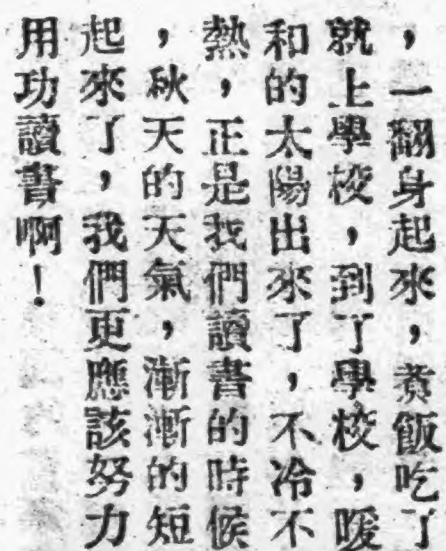 ，一翻身起來，煮飯吃了
就上學校，到了學校，暖
和的太陽出來了，不冷不
熱，正是我們讀書的時候
，秋天的天氣，漸漸的短
起來了，我們更應該努力
用功讀書啊！